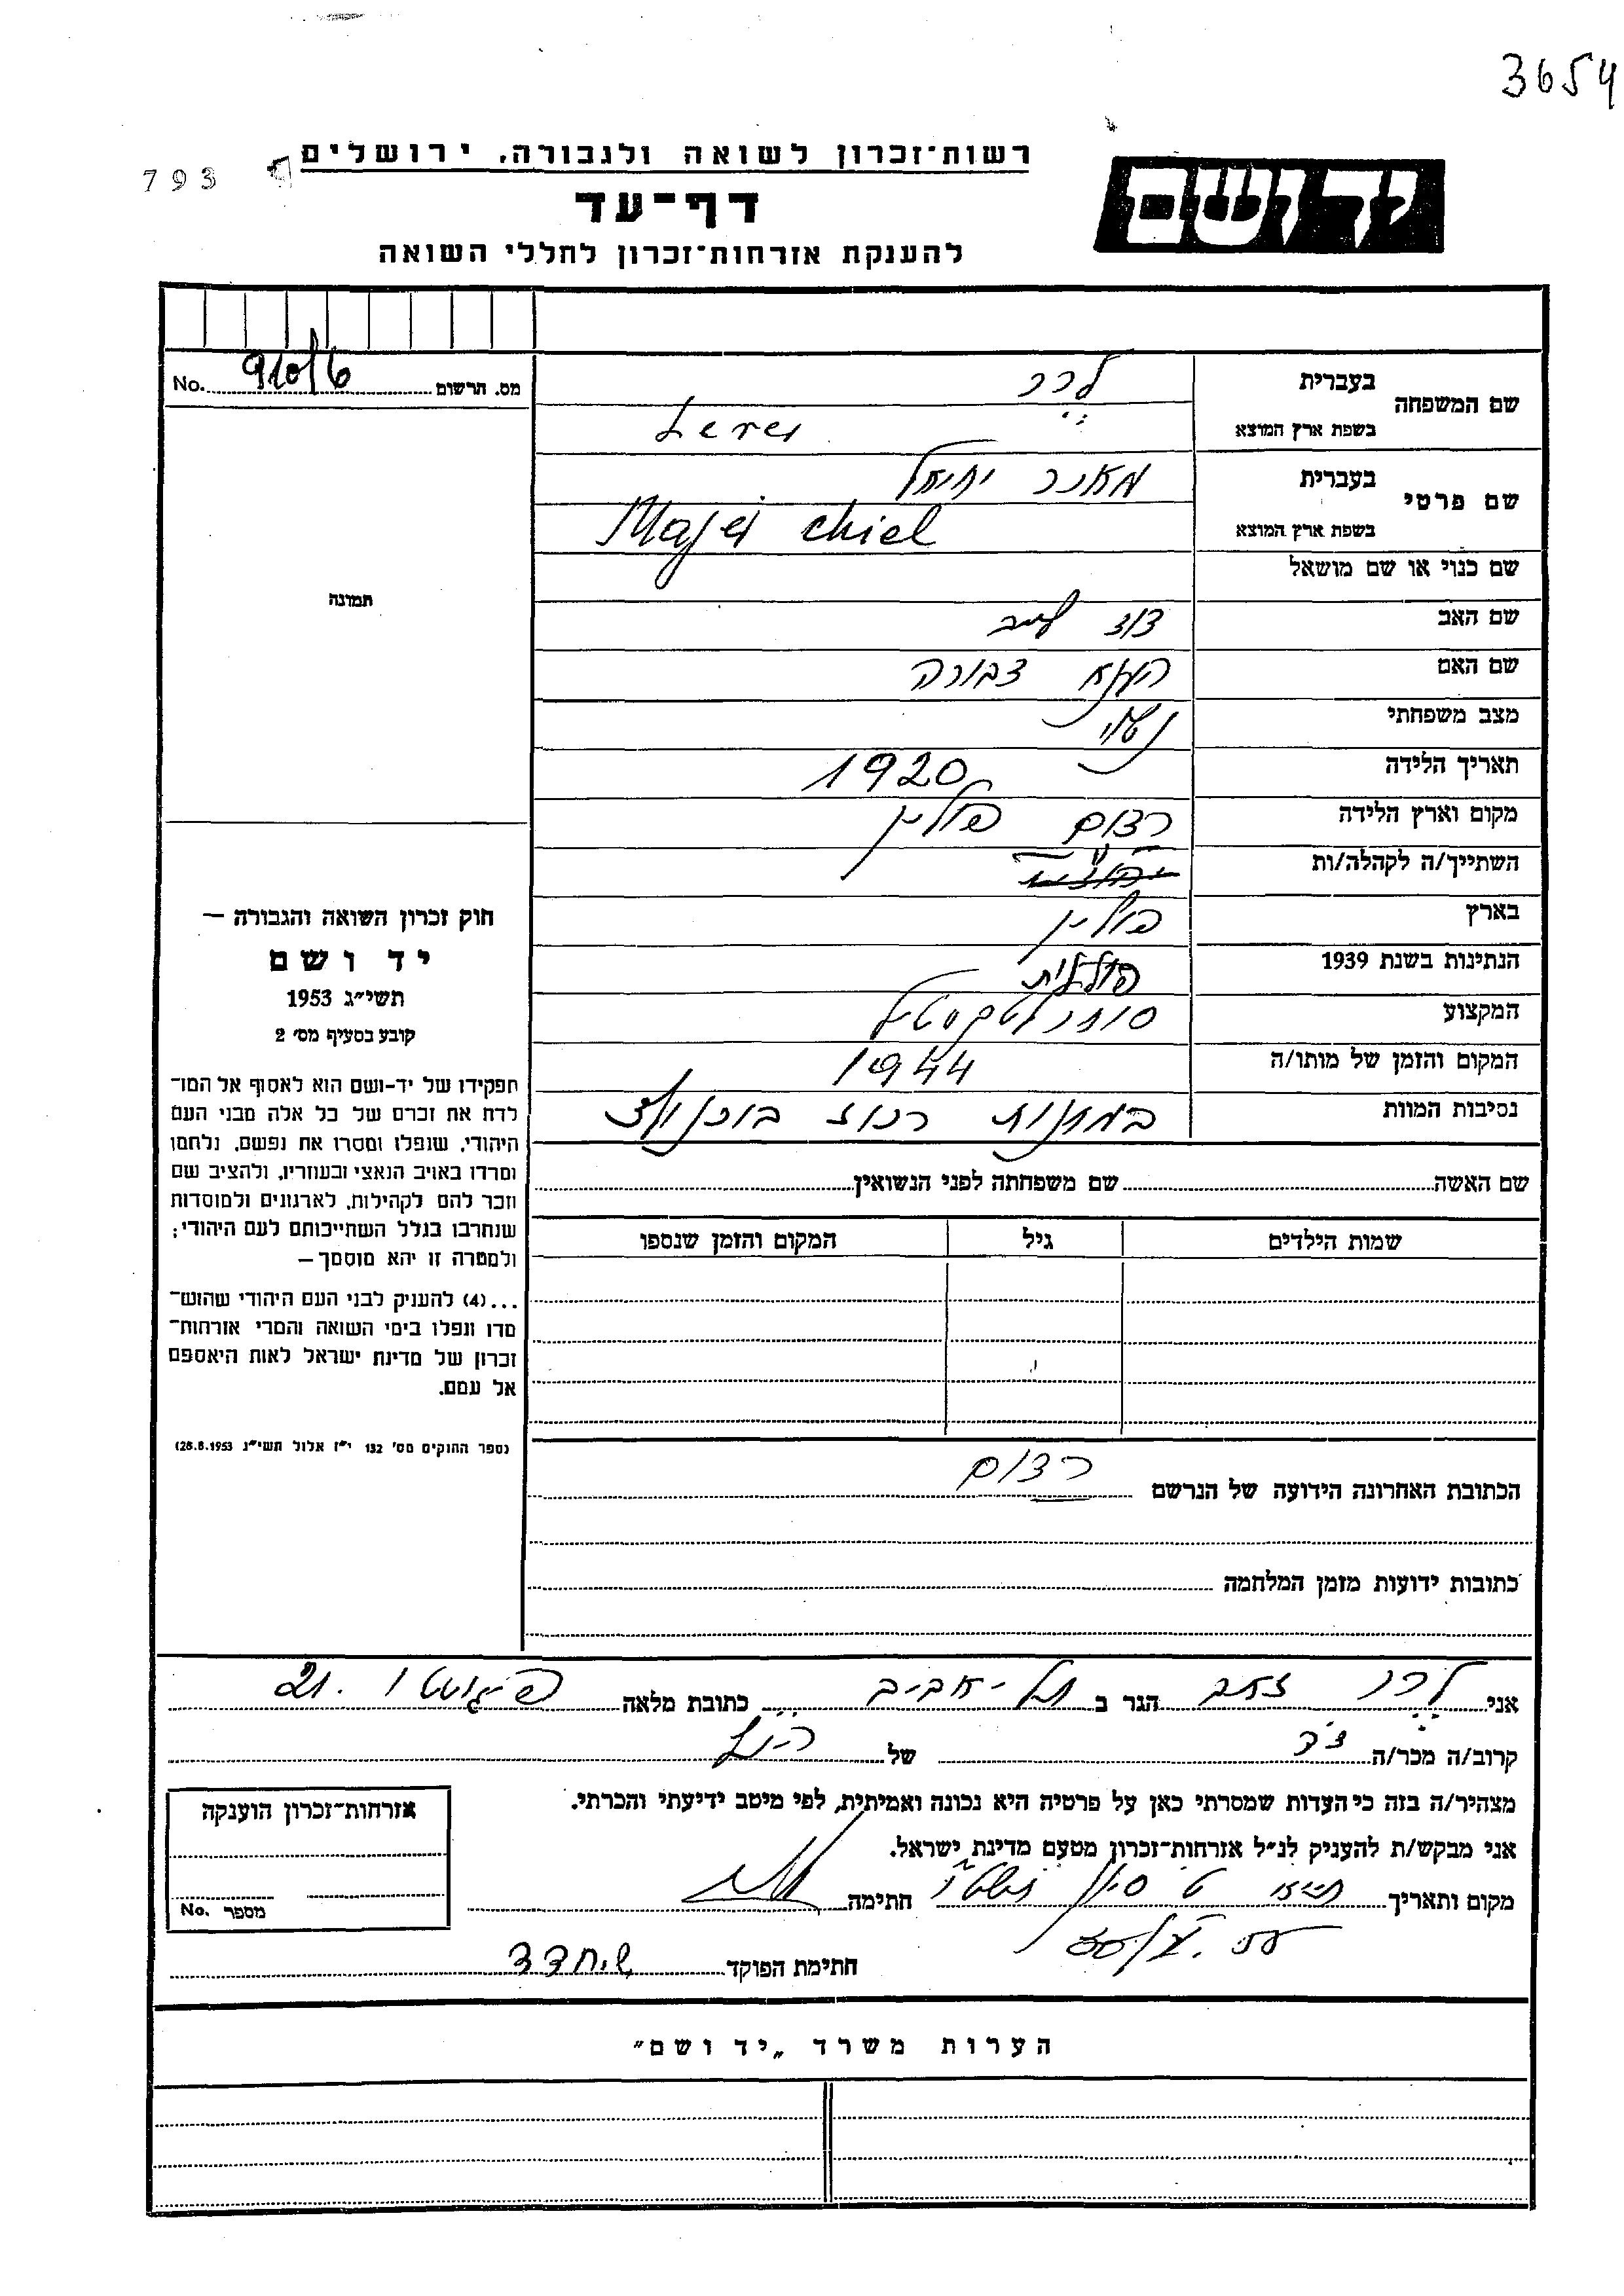 3654
793
רשות־זכרון לשואה ולגבורה, ירושלים
דף־עד
להענקת אזרחות־זכרון לחללי השואה
יד ושם
מס. הרשום No. 910/6
שם המשפחה
בעברית לרר
בשפת ארץ המוצא Lerer
שם פרטי
בעברית מאיר יחיאל
בשפת ארץ המוצא Majer Chiel
שם כנוי או שם מושאל
שם האב
שם האם צפורה
מצב משפחתי נשוי
תאריך הלידה 1920
מקום וארץ הלידה רדום פולין
השתייך/ה לקהלה/ות
בארץ פולין
הנתינות בשנת 1939 פולנית
המקצוע סוחר טקסטיל
המקום והזמן של מותו/ה 1944
נסיבות המוות במחנות רכוז בוכנולד
שם האשה
שם משפחתה לפני הנשואין
שמות הילדים גיל המקום והזמן שנספו
הכתובת האחרונה הידועה של הנרשם רדום
כתובות ידועות מזמן המלחמה
תמונה
חוק זכרון השואה והגבורה —
יד ושם
תשי״ג 1953
קובע בסעיף מס׳ 2
תפקידו של יד-ושם הוא לאסוף אל המו־
לדת את זכרם של כל אלה מבני העם
היהודי, שנפלו ומסרו את נפשם, נלחמו
ומרדו באויב הנאצי ובעוזריו, ולהציב שם
וזכר להם לקהילות, לארגונים ולמוסדות
שנחרבו בגלל השתייכותם לעם היהודי;
ולמטרה זו יהא מוסמך —
...(4) להעניק לבני העם היהודי שהוש־
מדו ונפלו בימי השואה והמרי אזרחות־
זכרון של מדינת ישראל לאות היאספם
אל עמם.
(ספר החוקים מס׳ 132 י״ז אלול תשי״ג 28.8.1953)
אני לרר זאב הגר ב תל-אביב כתובת מלאה 21
קרוב/ה מכר/ה של
מצהיר/ה בזה כי העדות שמסרתי כאן על פרטיה היא נכונה ואמיתית, לפי מיטב ידיעתי והכרתי.
אני מבקש/ת להעניק לנ״ל אזרחות־זכרון מטעם מדינת ישראל.
מקום ותאריך חתימה
חתימת הפוקד
אזרחות־זכרון הוענקה
מספר No.
הערות משרד „יד ושם״